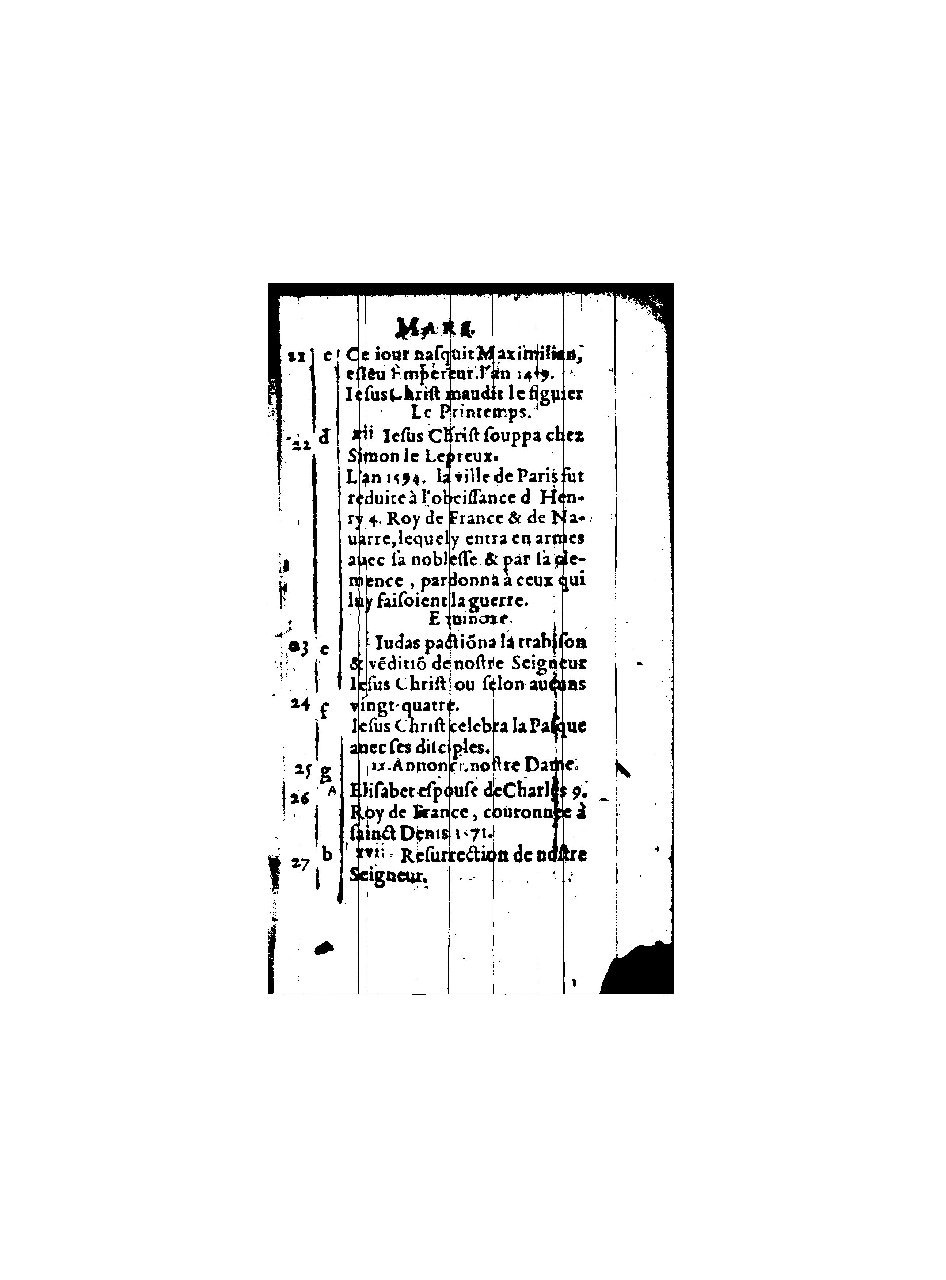 MARS.
21 c Ce iour naſquit Maximilian,
eſlêu Empereur l'an 1459.
Ieſus Chriſt maudit le figuier
Le Printemps.
22 d xii Ieſus Chriſt ſouppa chez
Simon le Lepreux.
L'an 1594. la ville de Paris fut
reduite à l'obeiſſance d Hen-
ry 4. Roy de France & de Na-
uarre, lequel y entra en armes
auec ſa nobleſſe & par ſa cle-
mence, pardonna à ceux qui
luy faiſoient la guerre.
Equinoxe.
23 e Iudas pactiõna la trahiſon
& vẽditiõ de noſtre Seigneur
Ieſus Chriſt ou ſelon aucuns
24 f vingt-quatre.
Ieſus Chriſt celebra la Paſque
auec ſes diſciples.
25 g ix. Annonc. noſtre Dame.
26 A Eliſabet eſpouſe de Charles 9.
Roy de France, couronnee à
ſainct Denis 1571.
27 b xvii Reſurrection de noſtre
Seigneur.